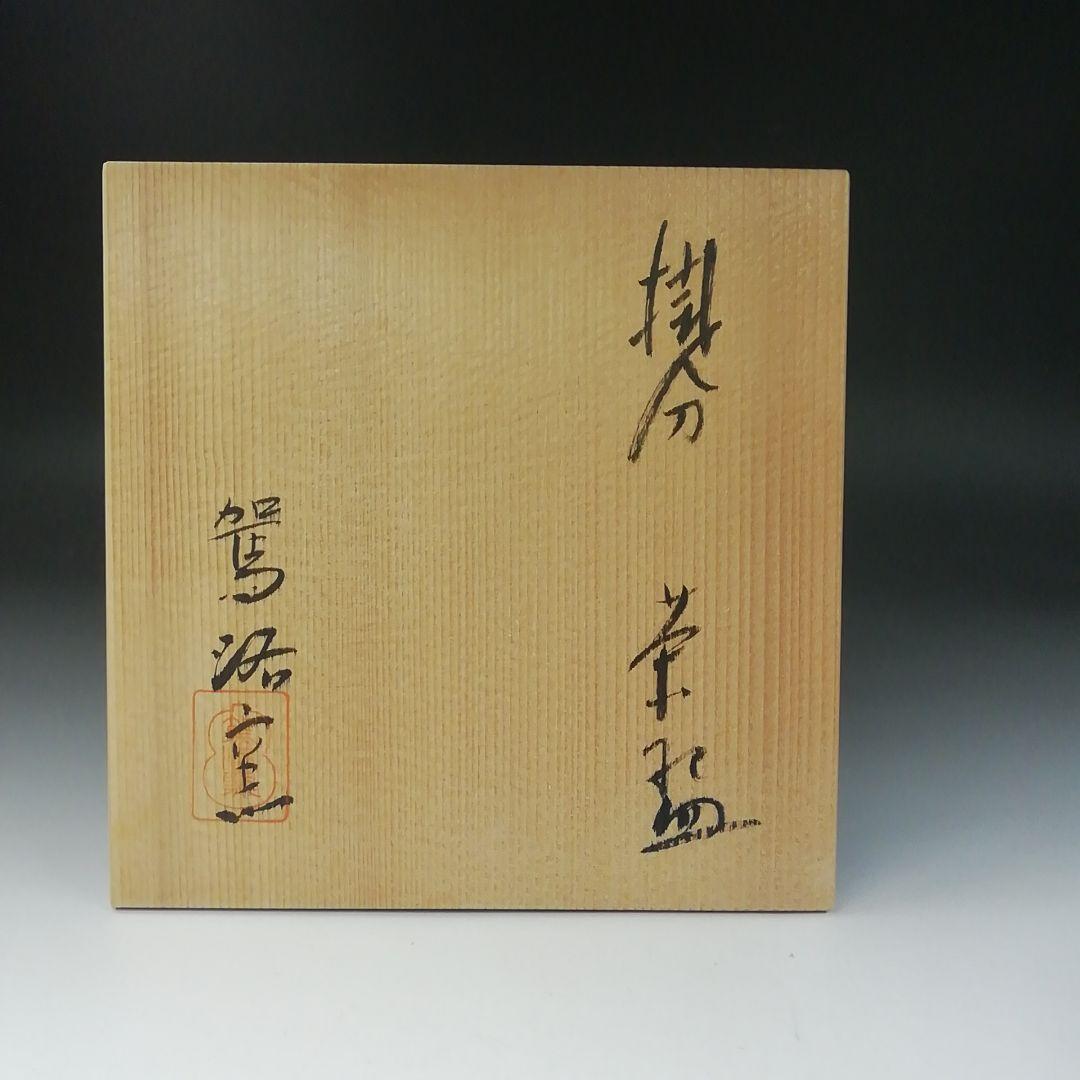 掛分 茶盌
駕洛窯